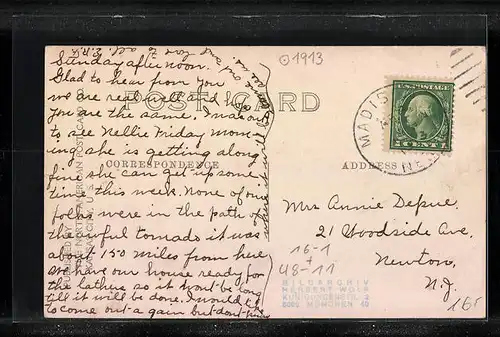 Sunday afternoon.
Glad to hear from you
we are real well and hope
you are the same. I ran out
to see Nellie Friday morn-
ing she is getting along
fine she can get up some
time this week. None of our
folks were in the path of
the awful tornado it was
about 150 miles from here
we have our house ready for
the lathers so it won't be long
till it will be done. I would like
to come out again but don't
and love to all. E.R.
POST CARD
CORRESPONDENCE
ADDRESS
PUBLISHED BY
THE NORTH AMERICAN POST CARD CO.
KANSAS CITY, U. S. A.
©1913
MADIS
NE
U.S. POSTAGE
CENT
Mrs Annie Depue.
21 Woodside Ave.
Newton,
N.J.
16-1
+
48-11
BILDARCHIV
HERBERT WOLF
8000 MÜNCHEN 40